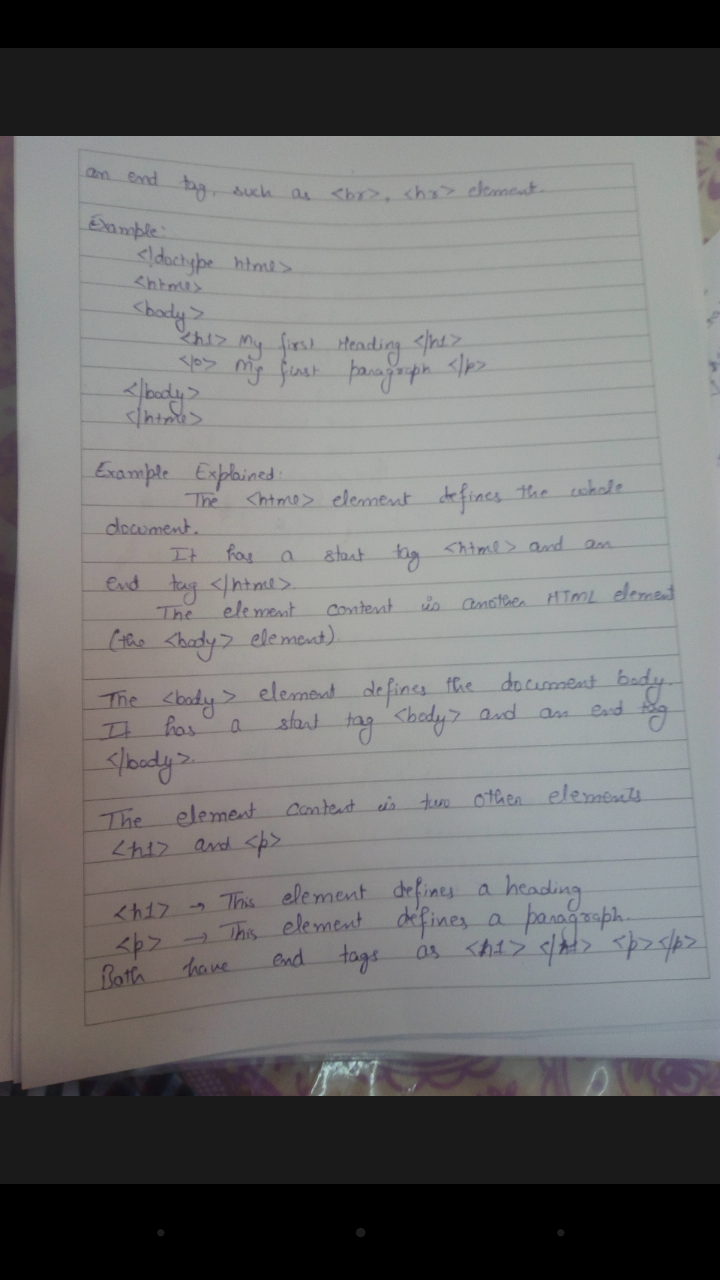 an end tag, such as <br>, <hr> element.
Example:
<!doctype html>
<html>
<body>
<h1> My first Heading </h1>
<p> My first paragraph </p>
</body>
</html>
Example Explained:
The <html> element defines the whole
document.
It has a start tag <html> and an
end tag </html>
The element content is another HTML element
(the <body> element).
The <body> element defines the document body.
It has a start tag <body> and an end tag
</body>.
The element content is two other elements
<h1> and <p>
<h1> → This element defines a heading
<p> → This element defines a paragraph.
Both have end tags as <h1> </h1> <p></p>